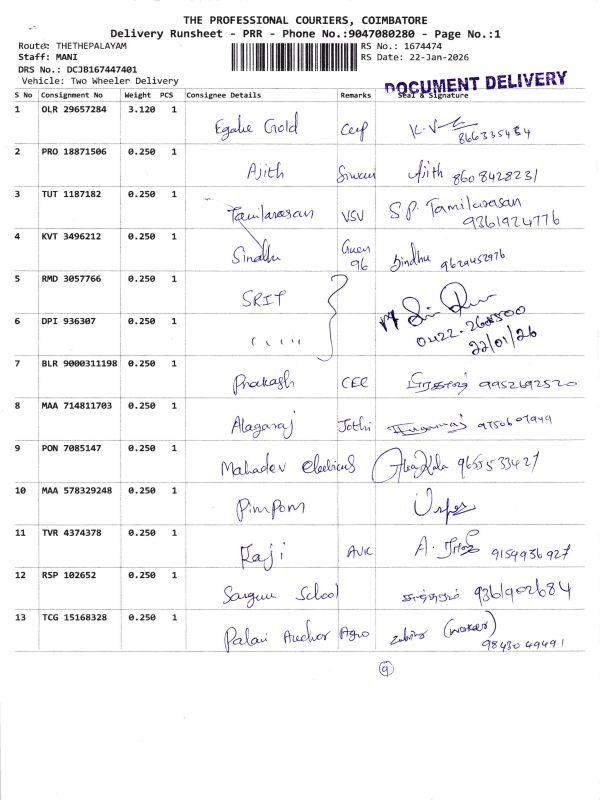 THE PROFESSIONAL COURIERS, COIMBATORE
Delivery Runsheet - PRR - Phone No.:9047080280 - Page No.:1
Route: THETHEPALAYAM
RS No.: 1674474
Staff: MANI
RS Date: 22-Jan-2026
DRS No.: DCJB167447401
Vehicle: Two Wheeler Delivery
DOCUMENT DELIVERY
S No Consignment No Weight PCS Consignee Details Remarks Seal & Signature
1 OLR 29657284 3.120 1 Gold
2 PRO 18871506 0.250 1 Ajith Siwani Ajith 8608428231
3 TUT 1187182 0.250 1 Tamilarasan VSV S.P. Tamilarasan
9361924776
4 KVT 3496212 0.250 1 Sindhu 96 Sindhu 9629452976
5 RMD 3057766 0.250 1 SRIT
6 DPI 936307 0.250 1 ,, ,,
22/01/26
7 BLR 9000311198 0.250 1 Prakash CEE 9952692520
8 MAA 714811703 0.250 1 Alagaraj Jothi 9750607949
9 PON 7085147 0.250 1 Mahadev electricals 9655533427
10 MAA 578329248 0.250 1 Pimpom
11 TVR 4374378 0.250 1 Raji AVK A. ராஜி 9159936927
12 RSP 102652 0.250 1 School 9361902684
13 TCG 15168328 0.250 1 Palani Agro (worker)
9843049491
9